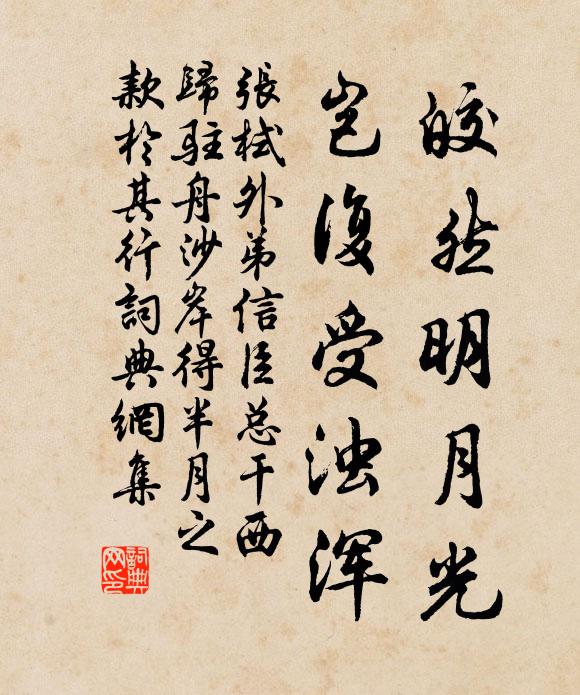 皎然明月光
岂復受浊浑
張栻外弟信臣总干西
歸駐舟沙岸得半月之
款於其行詞典網集
詞典
网印